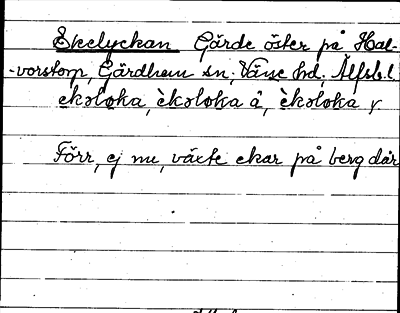 Ekelyckan Gärde öster på Hal-
-vorstorp, Gärdhem sn; Väne hd, Älfsb. l.
ekəloka, èkəloka å, èkəloka
Förr, ej nu, växte ekar på berg där